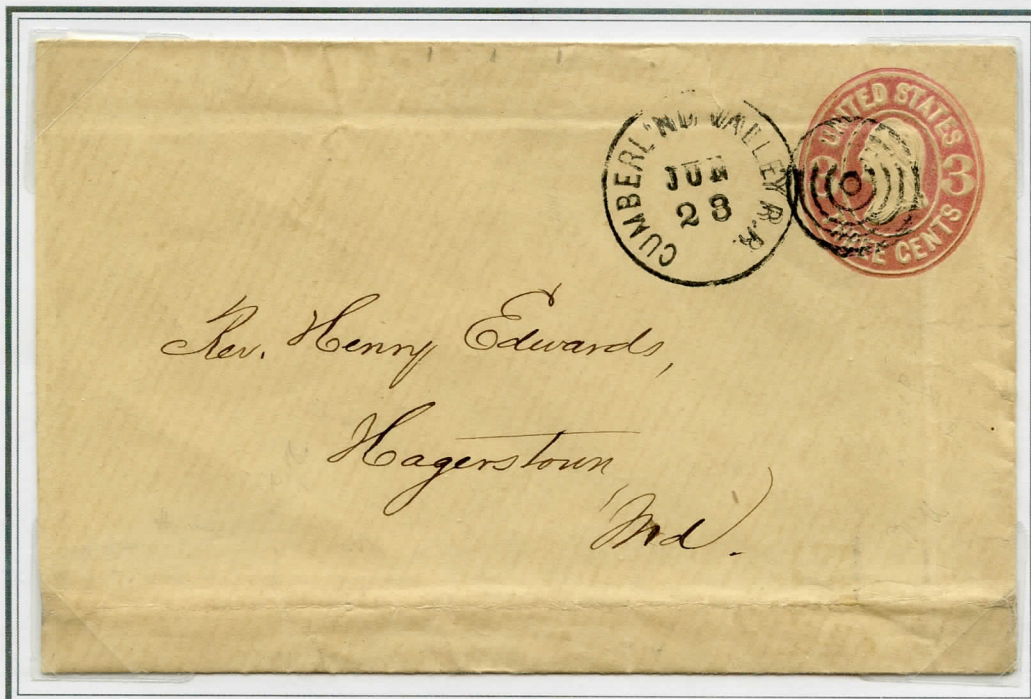 CUMBERLAND VALLEY R.R.
JUN
23
UNITED STATES
3
THREE CENTS
Rev. Henry Edwards,
Hagerstown
Md.